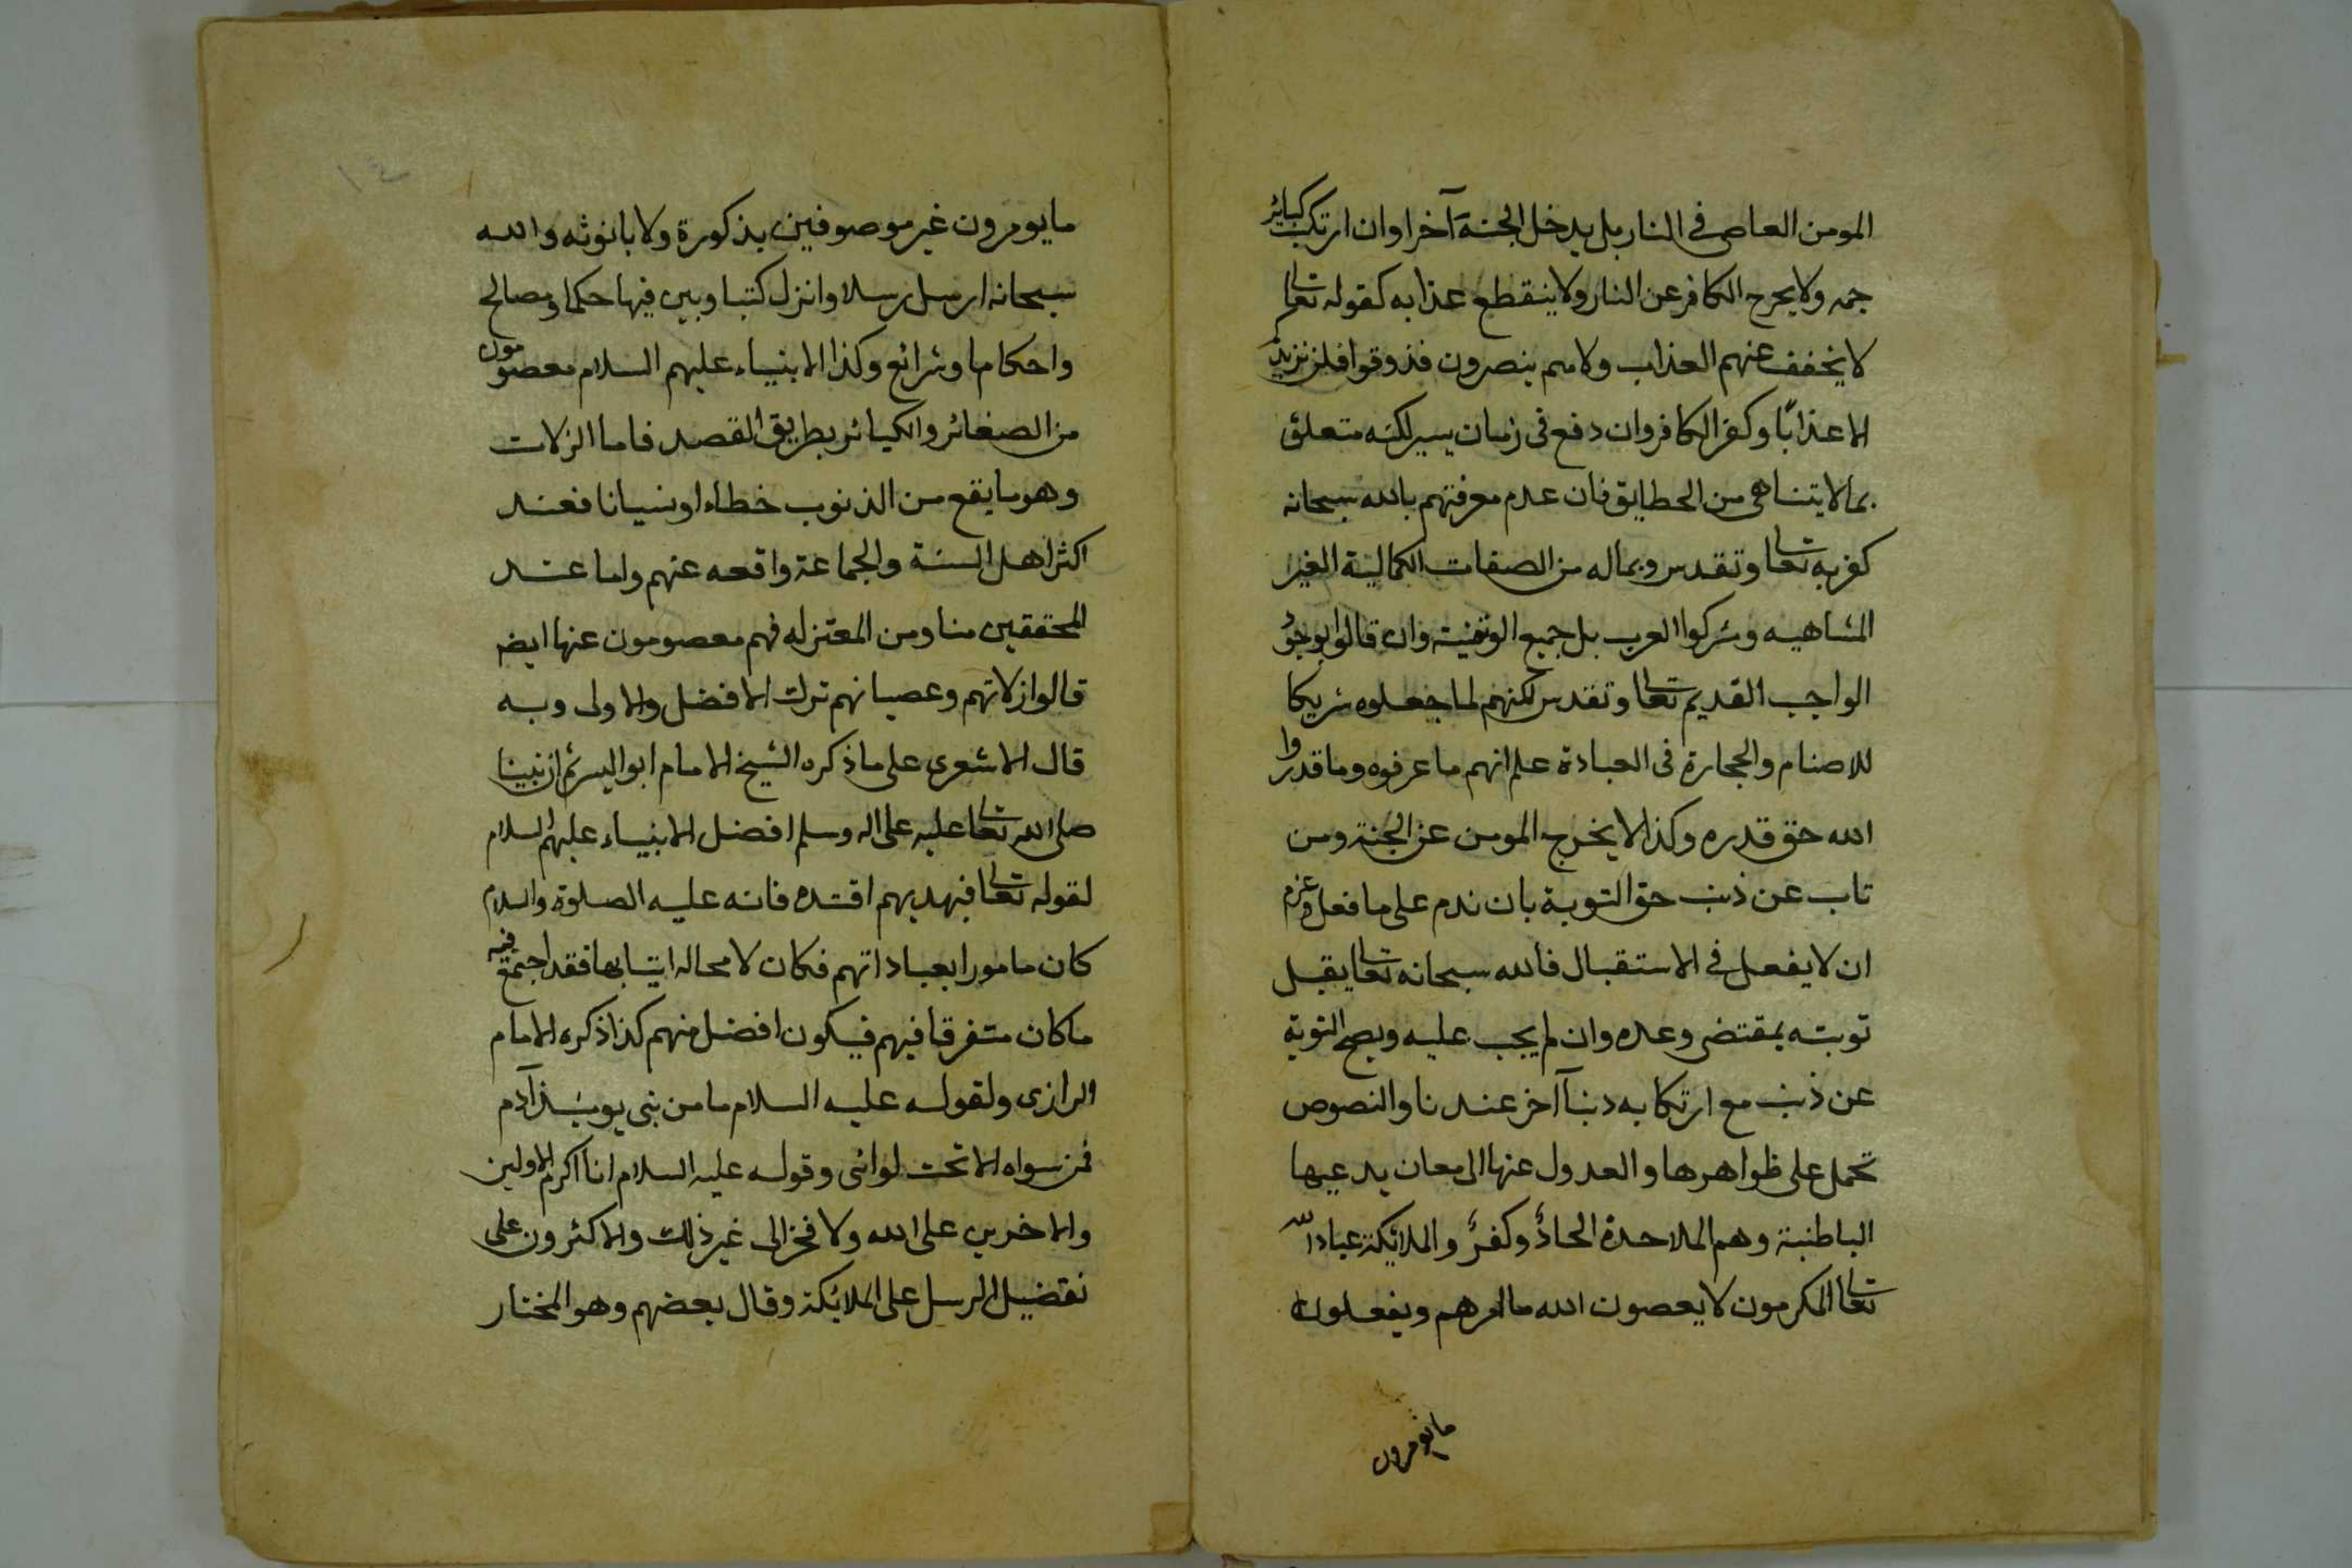 المومن العاصى فى النار بل يدخل الجنة آخرا وان ارتكب كبائر
جمه ولا يخرج الكافر عن النار ولا ينقطع عذابه كقوله تعالى
لا يخفف عنهم العذاب ولا هم ينصرون فذوقوا فلن نزيدكم
الا عذابًا وكفر الكافر وان دفع فى زمان يسير لكنه متعلق
بما لا يتناهى من الحطايق فان عدم معرفتهم بالله سبحانه
كفر به تعالى وتقدس وبماله من الصفات الكمالية الغير
المتناهيه ومشركوا العرب بل جميع الوثنية وان قالوا بوجود
الواجب القديم تعالى وتقدس لكنهم لما جعلوه شريكا
للاصنام والحجارة فى العبادة علم انهم ما عرفوه وما قدروا
الله حق قدره وكذا لا يخرج المومن عن الجنة ومن
تاب عن ذنب حق التوبة بان ندم على ما فعل وعزم
ان لا يفعل فى الاستقبال فالله سبحانه تعالى يقبل
توبته بمقتضى وعده وان لم يجب عليه ويصح التوبة
عن ذنب مع ارتكابه دنبا آخر عندنا والنصوص
تحمل على ظواهرها والعدول عنها الى معان يدعيها
الباطنية وهم الملاحدة الحادٌ وكفرٌ والملائكة عباد الله
تعالى المكرمون لا يعصون الله ما امرهم ويفعلون
مايومرون
مايومرون غير موصوفين بذكورة ولا بانوثه والله
سبحانه ارسل رسلا وانزل كتبا وبين فيها حكما ومصالح
واحكاما وشرائع وكذا الانبياء عليهم السلام معصومون
من الصغائر والكبائر بطريق القصد فاما الزلات
وهو ما يقع من الذنوب خطاء او نسيانا فعند
اكثر اهل السنة والجماعة واقعه عنهم واما عند
المحققين منا ومن المعتزله فهم معصومون عنها ايضه
قالوا زلاتهم وعصيانهم ترك الافضل والاولى وبه
قال الاشعرى على ما ذكره الشيخ الامام ابو اليسر ثم ان نبينا
صلى الله تعالى عليه على اله وسلم افضل الانبياء عليهم السلام
لقوله تعالى فبهديهم اقتده فانه عليه الصلوة والسلام
كان مامورا بعباداتهم فكان لا محاله ايتا بها فقد اجتمع فيه
ما كان متفرقا فيهم فيكون افضل منهم كذا ذكره الامام
الرازى ولقوله عليه السلام ما من بنى يوميئذ آدم
فمن سواه الا تحت لوائى وقوله عليه السلام انا اكرم الاولين
والاخرين على الله ولا فخر الى غير ذلك والاكثرون على
تفضيل الرسل على الملائكة وقال بعضهم وهو المختار